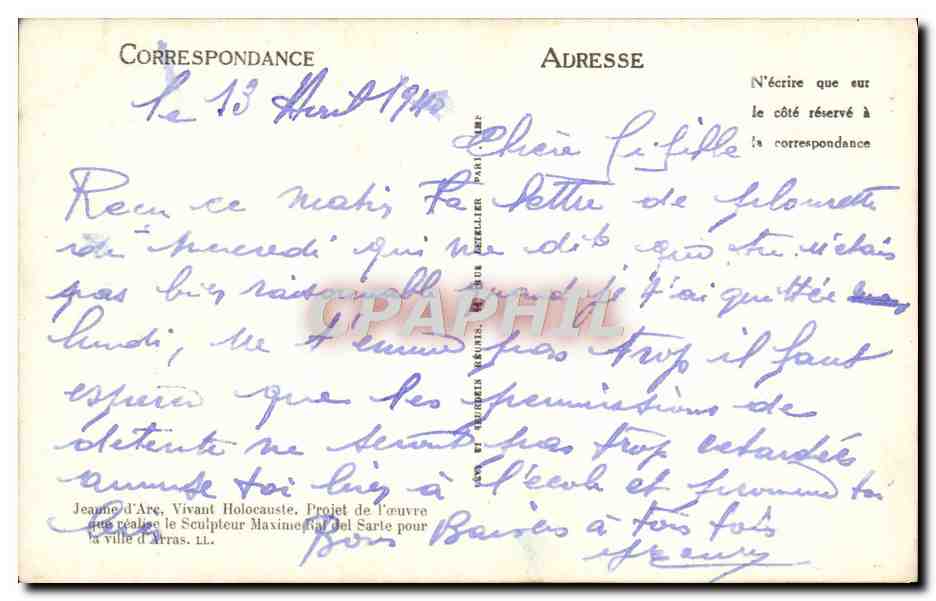 CORRESPONDANCE
ADRESSE
N'écrire que sur
le côté réservé à
la correspondance
le 13 Avril 1940
Chère Gifille
Reçu ce matin ta lettre de
de mercredi qui me dit que tu n'étais
pas bien raisonnable quand je t'ai quittée
lundi, ne t'ennuie pas trop il faut
espérer que les permissions de
détente ne seront pas trop retardés
amuse toi bien à l'école et promène toi
bien
Bons Baisers à tois tois
LEVY ET NEURDEIN RÉUNIS, 44, RUE LETELLIER PARIS. IMP
Jeanne d'Arc, Vivant Holocauste. Projet de l'œuvre
que réalise le Sculpteur Maxime Ral del Sarte pour
la ville d'Arras. LL.
CPAPHIL